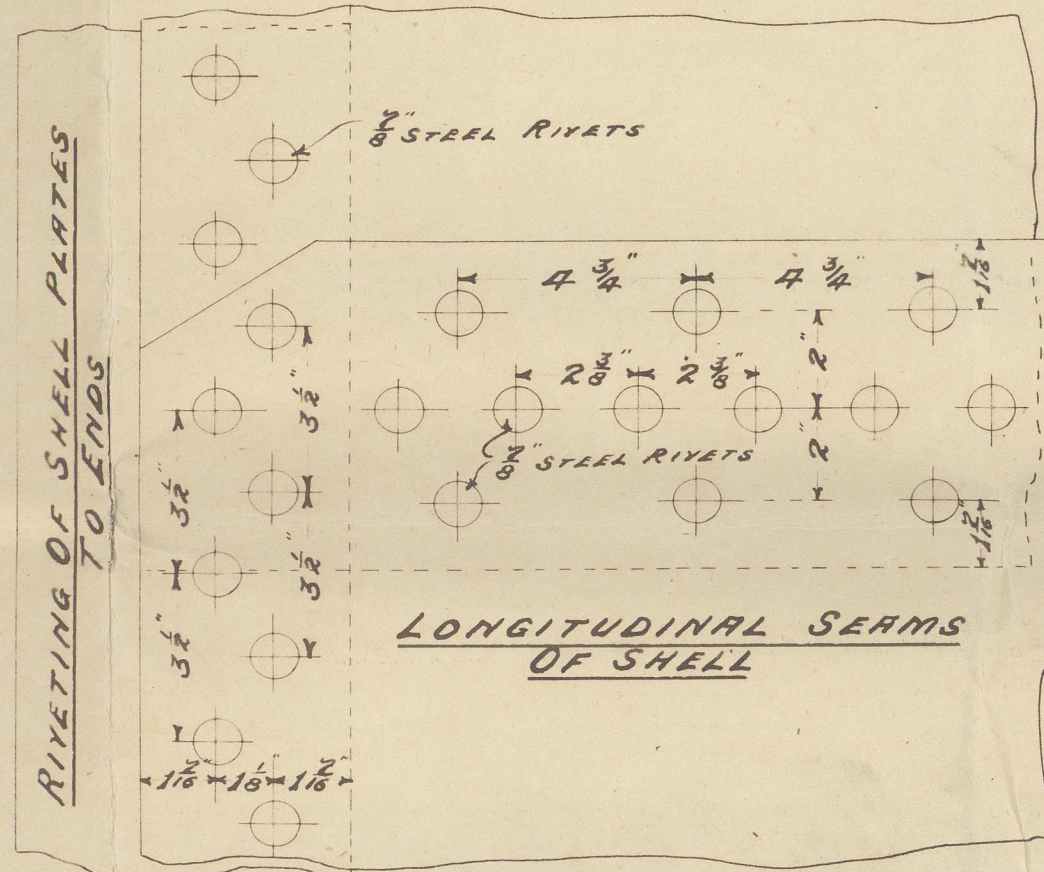 RIVETING OF SHELL PLATES
TO ENDS
7/8" STEEL RIVETS
4 3/4" 4 3/4"
1 7/16"
2 3/8" 2 3/8"
2"
2"
7/8" STEEL RIVETS
1 7/16"
3 1/2"
3 1/2"
3 1/2"
3 1/2"
LONGITUDINAL SEAMS
OF SHELL
1 7/16" 1 1/8" 1 7/16"